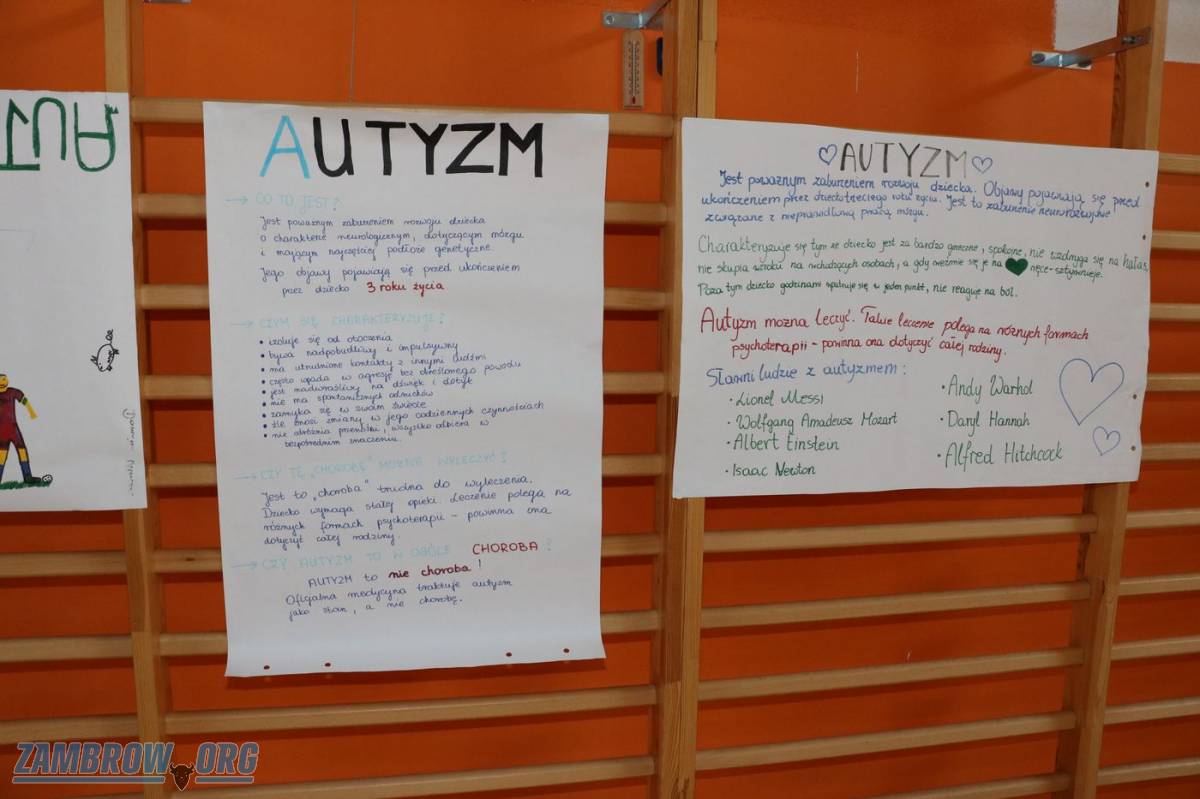 AUT
AUTYZM
→ CO TO JEST?
Jest poważnym zaburzeniem rozwoju dziecka
o charakterze neurologicznym, dotyczącym mózgu
i mającym najczęściej podłoże genetyczne.
Jego objawy pojawiają się przed ukończeniem
przez dziecko 3 roku życia
→ CZYM SIĘ CHARAKTERYZUJE?
• izoluje się od otoczenia
• bywa nadpobudliwy i impulsywny
• ma utrudnione kontakty z innymi ludźmi
• często wpada w agresję bez określonego powodu
• jest nadwrażliwy na dźwięk i dotyk
• nie ma spontanicznych odruchów
• zamyka się w swoim świecie
• źle znosi zmiany w jego codziennych czynnościach
• nie odróżnia przenośni, wszystko odbiera w
bezpośrednim znaczeniu.
→ CZY TĘ „CHOROBĘ" MOŻNA WYLECZYĆ?
Jest to „choroba" trudna do wyleczenia.
Dziecko wymaga stałej opieki. Leczenie polega na
różnych formach psychoterapii - powinna ona
dotyczyć całej rodziny.
→ CZY AUTYZM TO W OGÓLE CHOROBA?
AUTYZM to nie choroba!
Oficjalna medycyna traktuje autyzm
jako stan, a nie chorobę.
AUTYZM
Jest poważnym zaburzeniem rozwoju dziecka. Objawy pojawiają się przed
ukończeniem przez dziecko trzeciego roku życia. Jest to zaburzenie neurorozwojowe
związane z nieprawidłową pracą mózgu.
Charakteryzuje się tym że dziecko jest za bardzo grzeczne, spokojne, nie wzdryga się na hałas,
nie skupia wzroku na wchodzących osobach, a gdy weźmie się je na ręce - sztywnieje.
Poza tym dziecko godzinami wpatruje się w jeden punkt, nie reaguje na ból.
Autyzm można leczyć. Takie leczenie polega na różnych formach
psychoterapii - powinna ona dotyczyć całej rodziny.
Sławni ludzie z autyzmem:
• Lionel Messi
• Wolfgang Amadeusz Mozart
• Albert Einstein
• Isaac Newton
• Andy Warhol
• Daryl Hannah
• Alfred Hitchcock
ZAMBROW.ORG